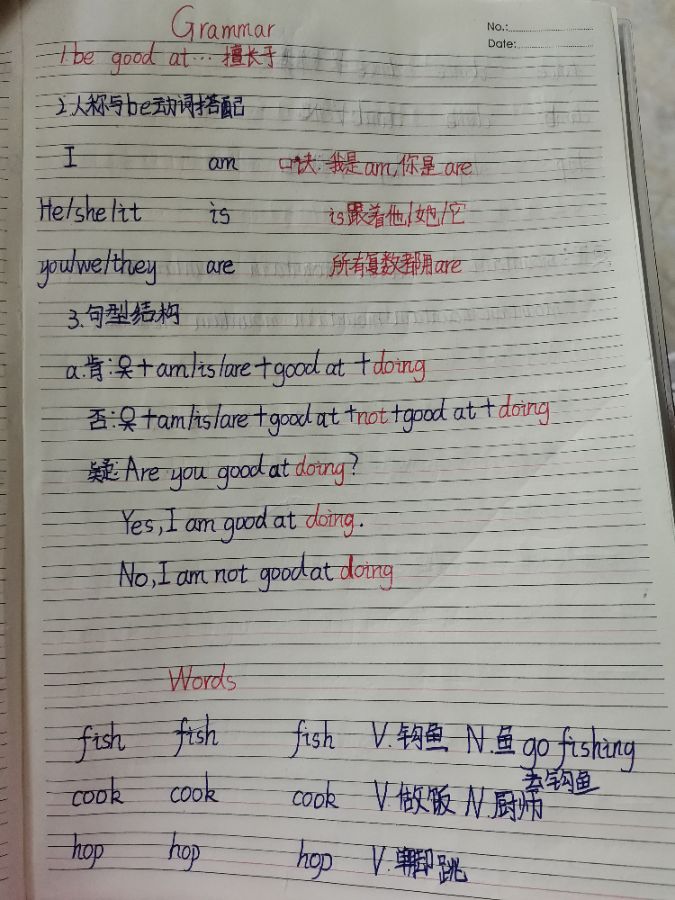 Grammar
No.:
Date:
1. be good at … 擅长于
2. 人称与be动词搭配
I am 口诀: 我是am, 你是are
He/she/it is is跟着他/她/它
you/we/they are 所有复数都用are
3. 句型结构
a. 肯: 从+am/is/are+good at +doing
否: +am/is/are+good at+not+good at+doing
疑: Are you good at doing?
Yes, I am good at doing.
No, I am not good at doing
Words
fish fish fish V. 钩鱼 N. 鱼 go fishing
去钩鱼
cook cook cook V. 做饭 N. 厨师
hop hop hop V. 脚跳